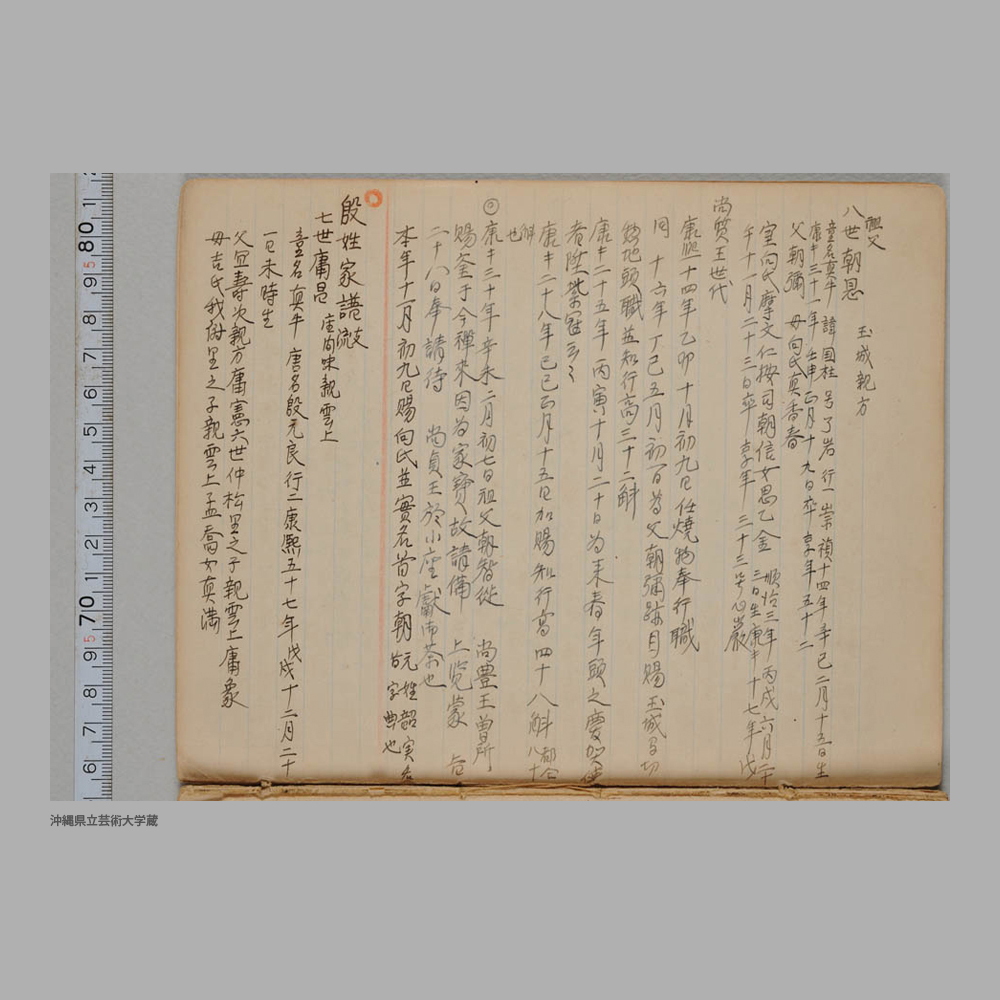 祖父
八世朝恩 玉城親方
童名真牛 諱国柱 号了岩 行一 崇禎十四年辛巳二月十五日生
康キ三十一年壬申正月十九日卒享年五十二
父朝彌 母向氏真香春
室向氏摩文仁按司朝信女思乙金 順治三年丙戌六月二十三日生康キ十七年戊
午十一月二十三日卒 享年三十三号心巌
尚質王世代
康熙十四年乙卯十月初九日任燒物奉行職
同 十六年丁巳五月初一日為父朝彌跡目賜玉城間切
惣地頭職並知行高三十二斛
康キ二十五年丙寅十月二十日为来春年頭之慶賀使
者陞紫冠云々
康キ二十八年己巳正月十五日加賜知行高四十八斛 都合八十
斛也
康キ三十年辛未二月初七日祖父朝智從 尚豊王曽所
賜釜于今禅来因为家寶故請備 上览蒙
二十八日奉請待 尚貞王於小座獻御茶也
本年十二月初九日賜向氏並實名首字朝 元姓韶実名
故字典也
殷姓家譜 支流
七世庸昆 座間味親雲上
童名真牛 唐名殷元良 行二 康熙五十七年戊戌十二月二十
一日未時生
父宜壽次親方庸憲六世仲松里之子親雲上庸象
母吉氏我謝里之子親雲上孟喬女真満
80
70
沖縄県立芸術大学蔵